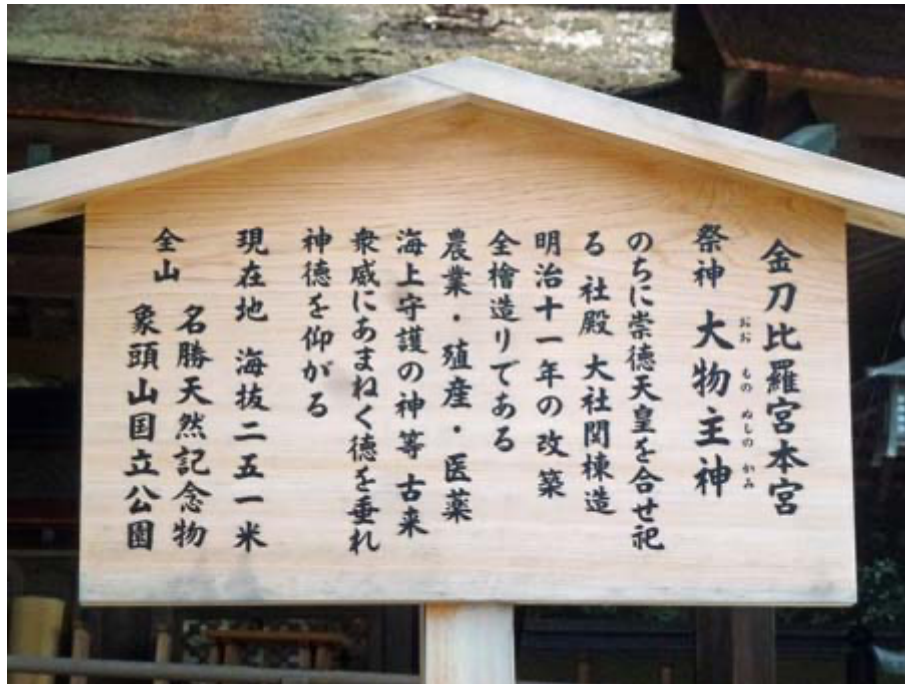 金刀比羅宮本宮
祭神 大物主神
おお もの ぬしの かみ
のちに崇徳天皇を合せ祀
る 社殿 大社関棟造
明治十一年の改築
全檜造りである
農業・殖産・医薬
海上守護の神等古来
衆感にあまねく徳を垂れ
神徳を仰がる
現在地 海抜二五一米
全山 名勝天然記念物
象頭山国立公園